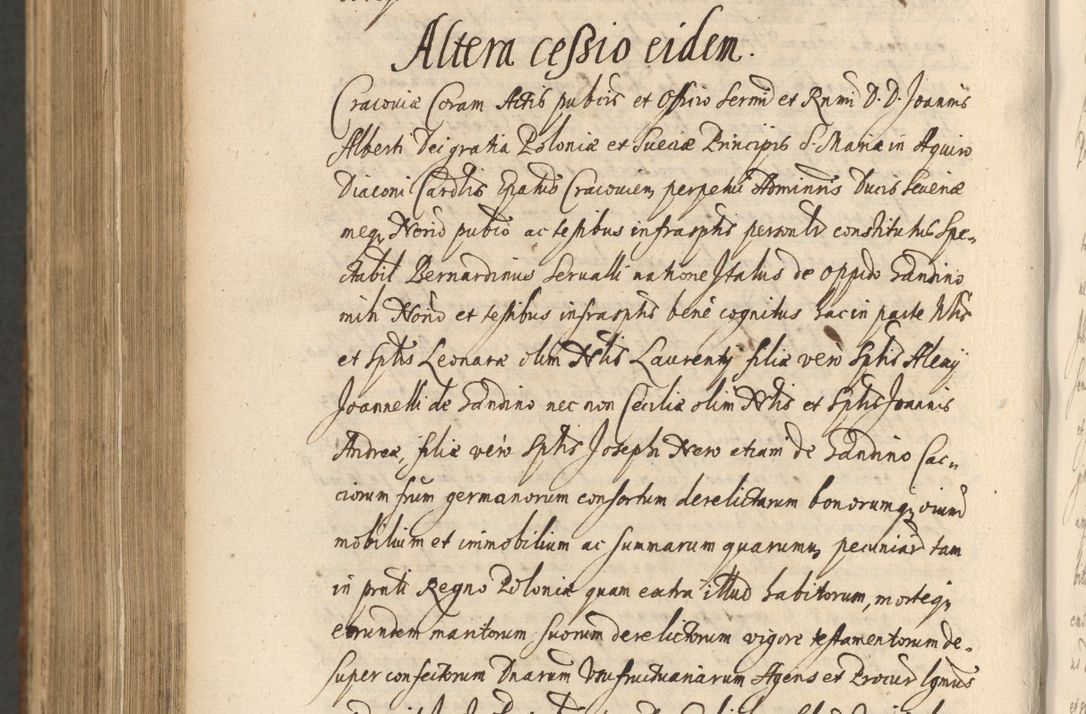 Altera ceßio eidem.
Cracoviæ Coram Actis publcis et Officio Sermi et Rnmi D. D. Joannis
Alberti Dei gratia Poloniæ et Sueciæ Principis S. Mariæ in Aquiro
Diaconi Cardlis Epatus Cracovien, perpetui Administris Ducis Severiæ
meq Notrio pubco ac testibus infrasptis personlr constitutus Spe=
ctabil Bernardinus Servalli natione Italus de oppido Gandino
mihi Notrio et testibus infrasptis bene cognitus hac in parte Nlis
et Sptis Leonaræ olim Nlis Laurentij filiæ vero Sptis Alexij
Joannelli de Gandino nec non Ceciliæ olim Nlis et Sptis Joannis
Andreæ, filiæ vero Sptis Joseph Nero etiam de Gandino Cac=
ciorum frum germanorum consortum derelictarum bonorumq, oium
mobilium et immobilium ac summarum quarumvis pecuniar tam
in pnti Regno Poloniæ quam extra illud habitorum, morteq,
eorundem maritorum suorum derelictorum vigore testamentorum de=
super confectorum Dnarum Usufructuariarum Agens et Procur lgmus